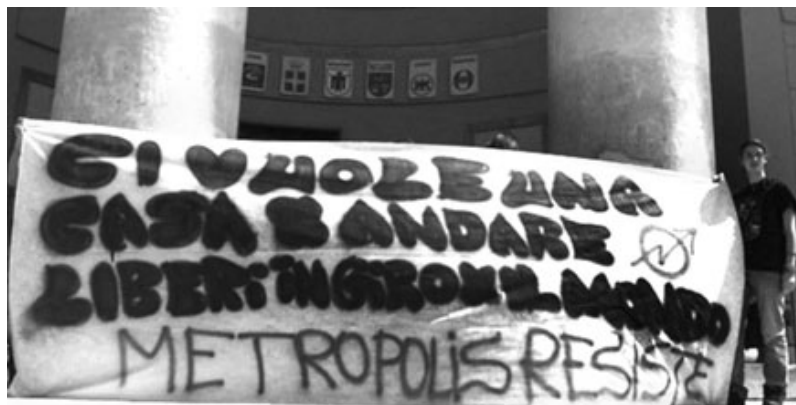 CI ♥UOLE UNA
CASA X ANDARE
LIBERI IN GIRO X IL MONDO
METROPOLIS RESISTE